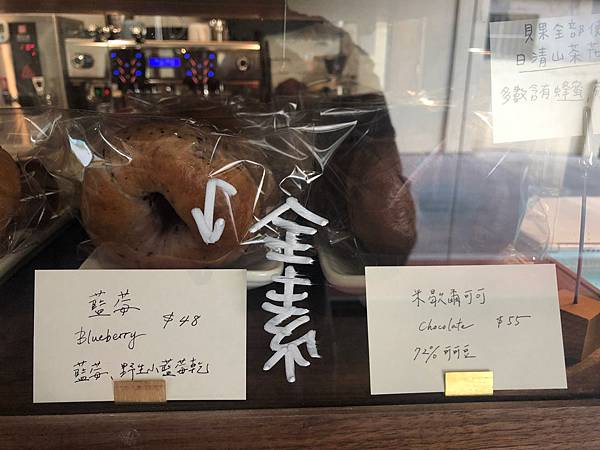 貝果全部使
日晴山茶花
多數含有蜂蜜
全素
藍莓
Blueberry $48
藍莓、野生小藍莓乾
米歇爾可可
Chocolate $55
72%可可豆